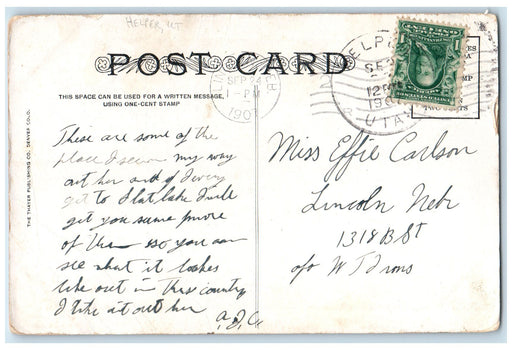 HELPER, UT
POST CARD
THIS SPACE CAN BE USED FOR A WRITTEN MESSAGE,
USING ONE-CENT STAMP
SEP 24
1-PM
190
HELP
SE
12
190
UTA
THE THAYER PUBLISHING CO. DENVER COLO.
These are some of the
place I seen my way
out her and if I every
get to Salt lake I will
get you some more
of them so you can
see what it lookes
like out in this country
I like it out her
Miss Effie Carlson
Lincoln Nebr
1318 B St
c/o W T Irons